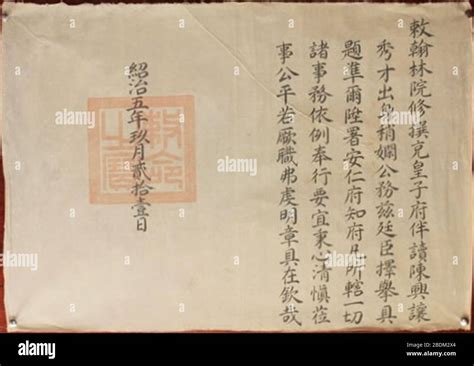 敕翰林院修撰充皇子府伴讀陳興讓
秀才出身稍嫻公務兹廷臣擇舉具
題準爾陞署安仁府知府凡所轄一切
諸事務依例奉行要宜秉心清慎蒞
事公平若厥職弗虔明章具在欽哉
紹治五年玖月貳拾壹日
敕命之寶
alamy